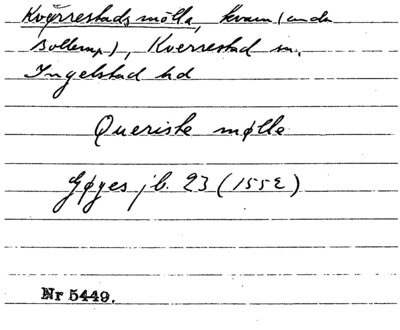 Kvärrestads mölla, kvarn (under
Bollerup), Kverrestad sn.
Ingelstad hd
Queriste mølle
Gøyes jb. 23 (1552)
Nr 5449.